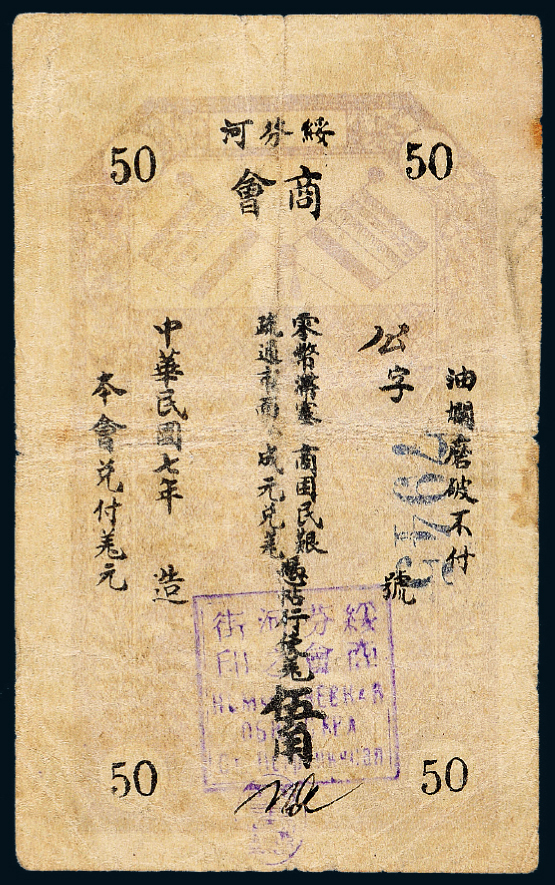 50
50
綏芬河
商會
油爛磨破不付
公字
號
7945
零幣滯塞 商困民艱
疏通市面 成元兑羌
憑帖行使羌
伍角
中華民國七年 造
本會兑付羌元
綏芬河街
商會
50
50